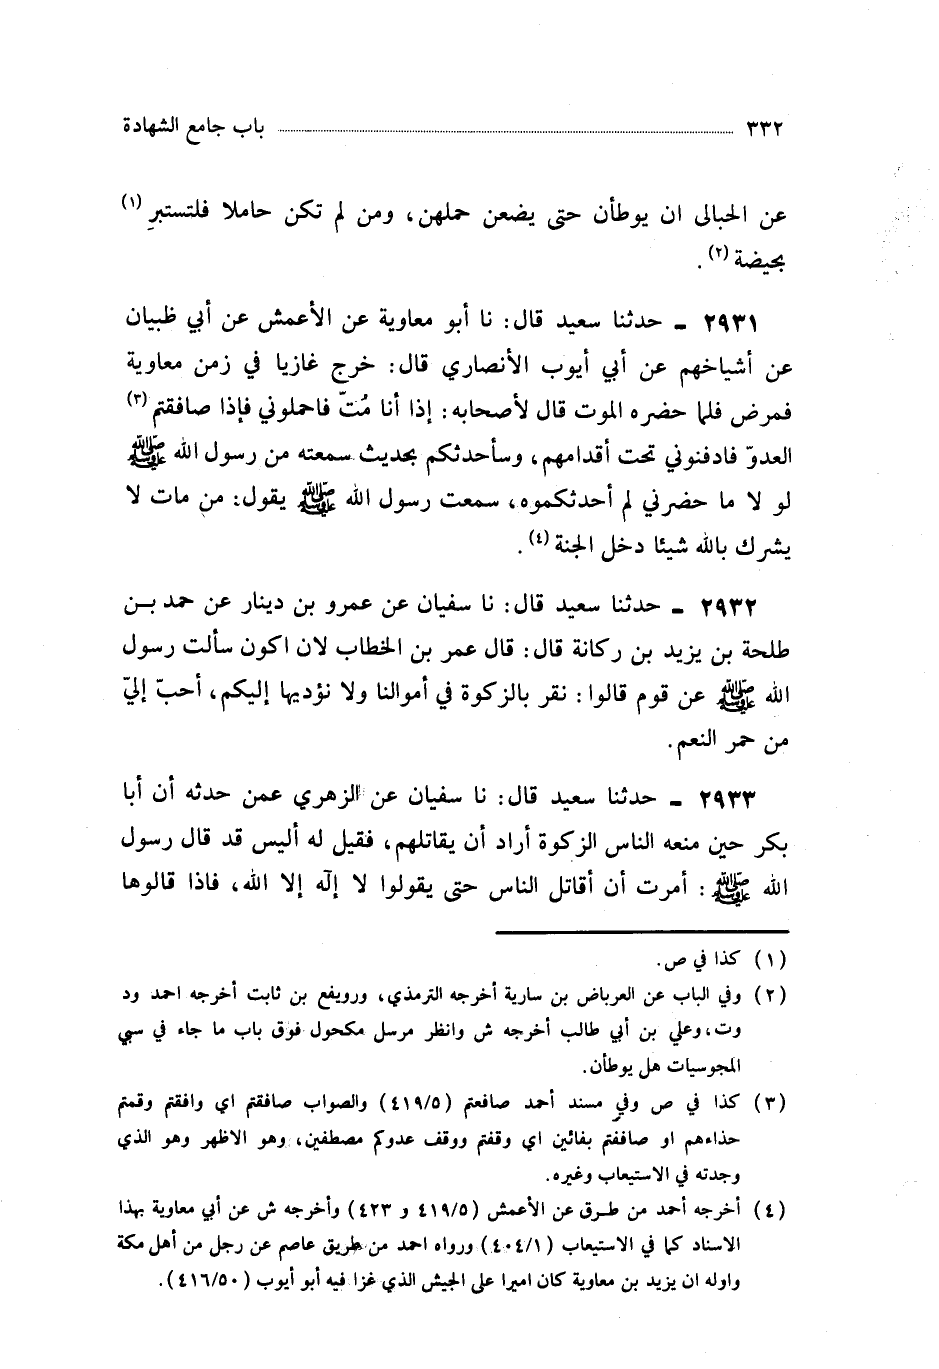 ٣٣٢ باب جامع الشهادة
عن الحبالى ان يوطأن حتى يضعن حملهن، ومن لم تكن حاملا فلتستبر (١)
بحيضة (٢) .
٢٩٣١ ـ حدثنا سعيد قال: نا أبو معاوية عن الأعمش عن أبي ظبيان
عن أشياخهم عن أبي أيوب الأنصاري قال: خرج غازيا في زمن معاوية
فمرض فلما حضره الموت قال لأصحابه: إذا أنا مُتّ فاحملوني فإذا صافقتم (٣)
العدوّ فادفنوني تحت أقدامهم، وسأحدثكم بحديث سمعته من رسول الله ﷺ
لو لا ما حضرني لم أحدثكموه، سمعت رسول الله ﷺ يقول: من مات لا
يشرك بالله شيئا دخل الجنة (٤) .
٢٩٣٢ ـ حدثنا سعيد قال: نا سفيان عن عمرو بن دينار عن حمد بـن
طلحة بن يزيد بن ركانة قال: قال عمر بن الخطاب لان اكون سألت رسول
الله ﷺ عن قوم قالوا: نقر بالزكوة في أموالنا ولا نؤديها إليكم، أحبّ إليّ
من حمر النعم.
٢٩٣٣ ـ حدثنا سعيد قال: نا سفيان عن الزهري عمن حدثه أن أبا
بكر حين منعه الناس الزكوة أراد أن يقاتلهم، فقيل له أليس قد قال رسول
الله ﷺ: أمرت أن أقاتل الناس حتى يقولوا لا إلّه إلا الله، فاذا قالوها
(١) كذا في ص.
(٢) وفي الباب عن العرباض بن سارية أخرجه الترمذي، ورويفع بن ثابت أخرجه احمد ود
وت، وعلي بن أبي طالب أخرجه ش وانظر مرسل مكحول فوق باب ما جاء في سبي
المجوسيات هل يوطأن.
(٣) كذا في ص وفي مسند أحمد صافعتم (٤١٩/٥) والصواب صافقتم اي وافقتم وقمتم
حذاءهم او صاففتم بفائين اي وقفتم ووقف عدوكم مصطفين، وهو الاظهر وهو الذي
وجدته في الاستيعاب وغيره.
(٤) أخرجه أحمد من طـرق عن الأعمش (٤١٩/٥ و ٤٢٣) وأخرجه ش عن أبي معاوية بهذا
الاسناد كما في الاستيعاب (٤٠٤/١) ورواه احمد من طريق عاصم عن رجل من أهل مكة
واوله ان يزيد بن معاوية كان اميرا على الجيش الذي غزا فيه أبو أيوب (٤١٦/٥٠).